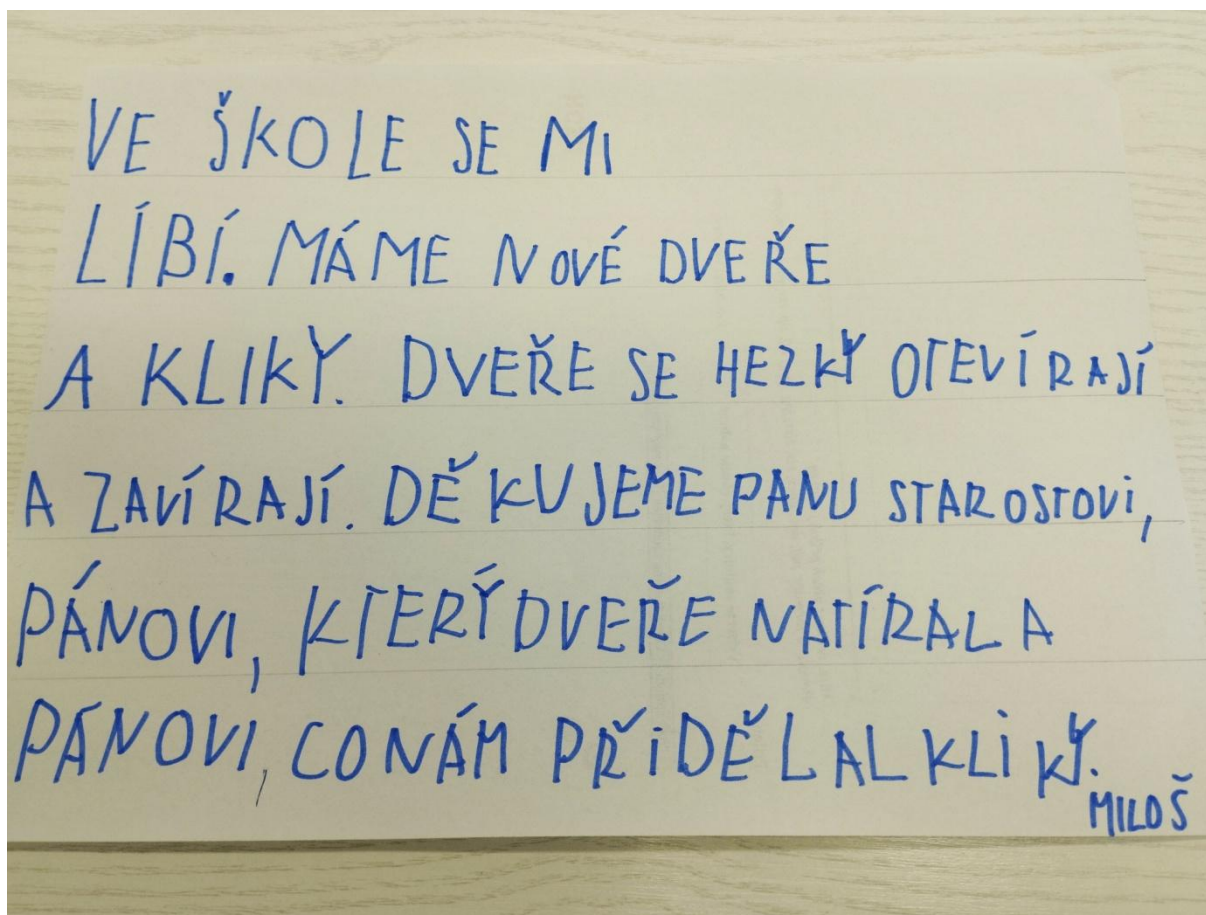 VE ŠKOLE SE MI
LÍBÍ. MÁME NOVÉ DVEŘE
A KLIKY. DVEŘE SE HEZKY OTEVÍRAJÍ
A ZAVÍRAJÍ. DĚKUJEME PANU STAROSTOVI,
PÁNOVI, KTERÝ DVEŘE NATÍRAL A
PÁNOVI, CO NÁM PŘIDĚLAL KLIKY.
MILOŠ